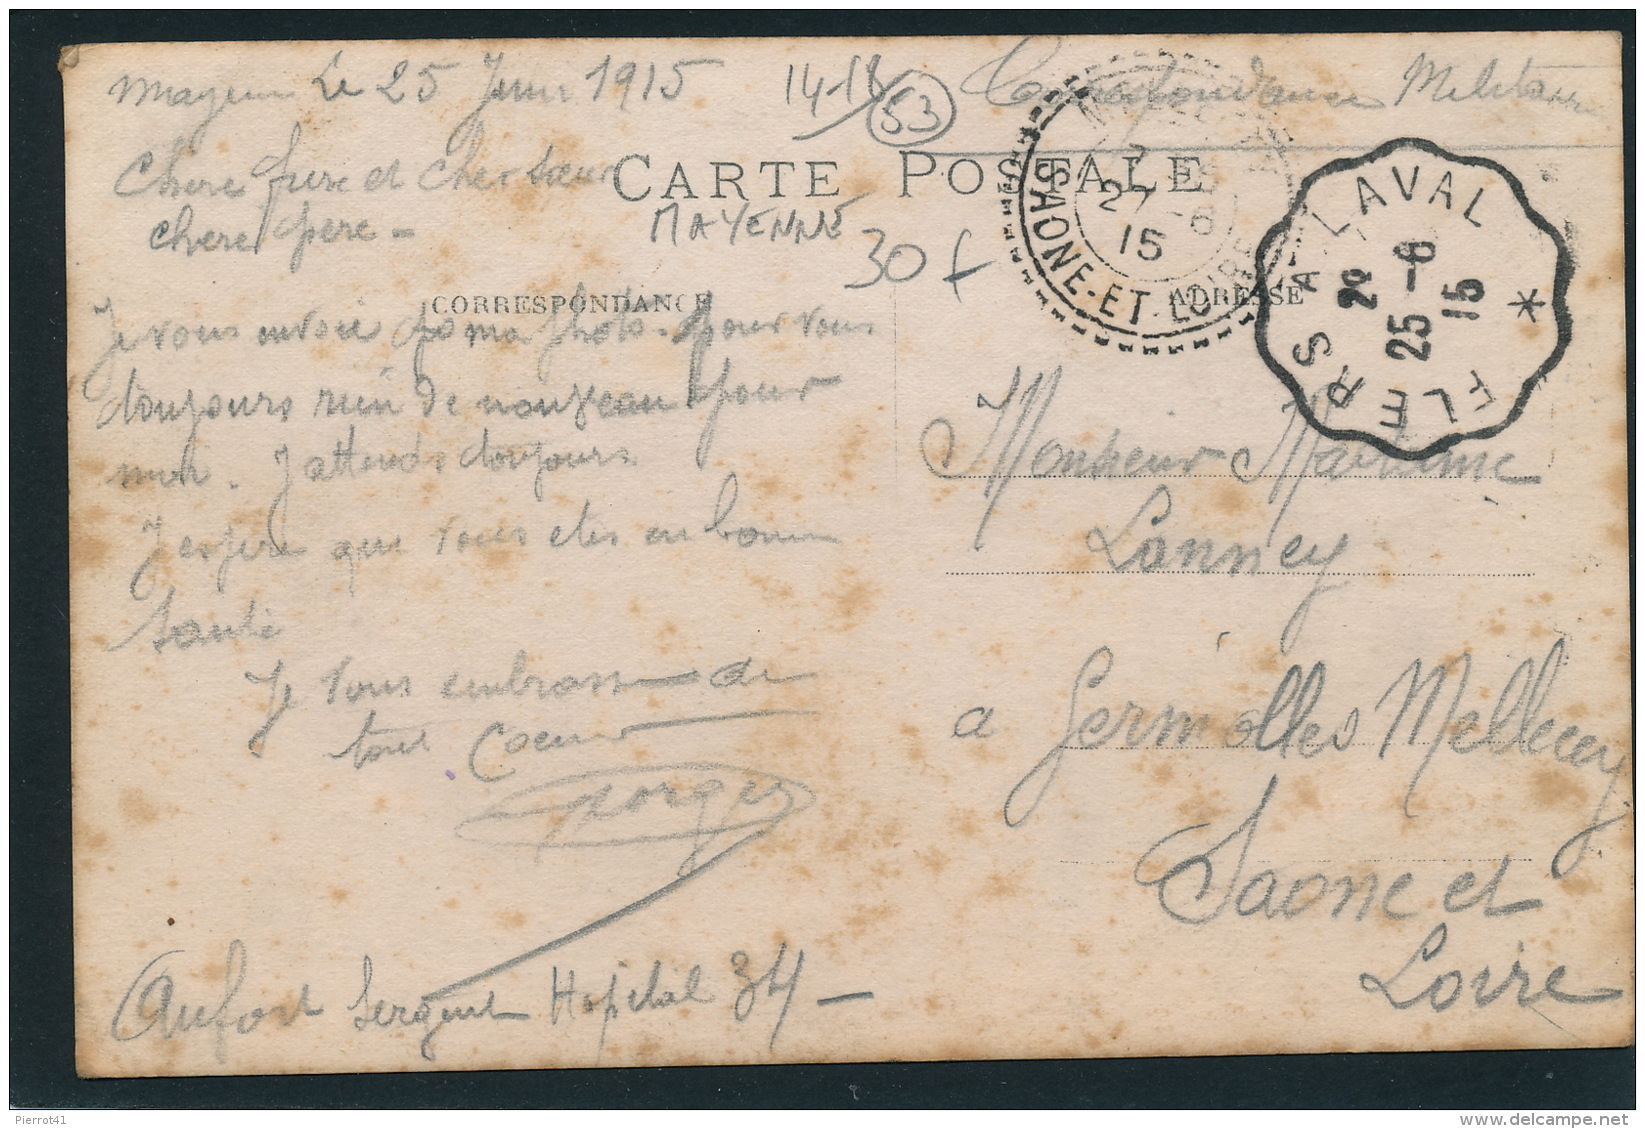 Mayenne Le 25 Juin 1915
14-18
53
Correspondance Militaire
CARTE POSTALE
Chere frere et cher soeur
chere pere -
MAYENNE
30 f
CORRESPONDANCE
ADRESSE
27 -6
15
SAONE-ET-LOIRE
FLERS A LAVAL *
2º
25 -6
15
Je vous envoie ma photo. pour vous
toujours rien de nouveau pour
moi. J attends toujours
J espere que vous etes en bonne
santé
Je vous embrasse de
tout Coeur
Georges
Aufort Sergent Hopital 34 -
Monsieur Maxime
Lanney
a Germolles Mellecey
Saone et
Loire
Pierrot41
www.delcampe.net